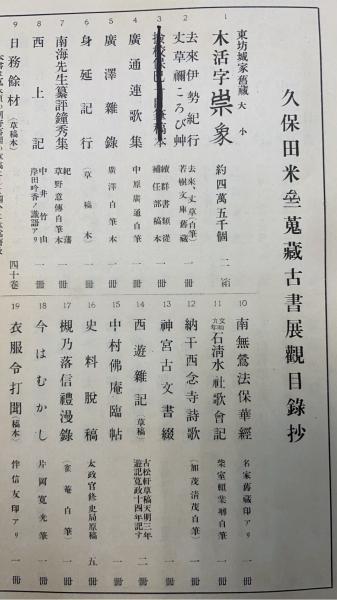 久保田米僊蒐藏古書展觀目錄抄
東坊城家舊藏
1 木活字 大小 約四萬五千個 二箱
2 去來伊勢紀行 丈草禰ころび艸 去來・丈草(自筆) 若樹文庫舊藏 一冊
3 續群書類從補任部稿本 一冊
4 廣通連歌集 中原廣通自筆 一冊
5 廣澤雜錄 廣澤自筆本 一冊
6 身延記行 (草稿本) 一冊
7 南海先生纂評鐘秀集 紀藩草野意傳自筆本 一冊
8 西上記 中井竹山 岸田吟香ノ識語アリ 一冊
9 日務餘材 (草稿本) 四十卷
10 南無鶯法保華經 名家舊藏印アリ 一冊
11 石淸水社歌會記 柴室賴業等自筆 一冊
12 納干西念寺詩歌 (加茂淸茂自筆) 一冊
13 神宮古文書綴 一冊
14 西遊雜記 (草稿) 古松軒草稿天明三年遊記寬政十四年記す 二冊
15 中村佛庵臨帖 一冊
16 史料脫稿 太政官修史局原稿 五冊
17 槻乃落信禮漫錄 (雀庵自筆) 一冊
18 今はむかし 片岡寬光筆 一冊
19 衣服令打聞 (稿本) 伴信友印アリ 一冊